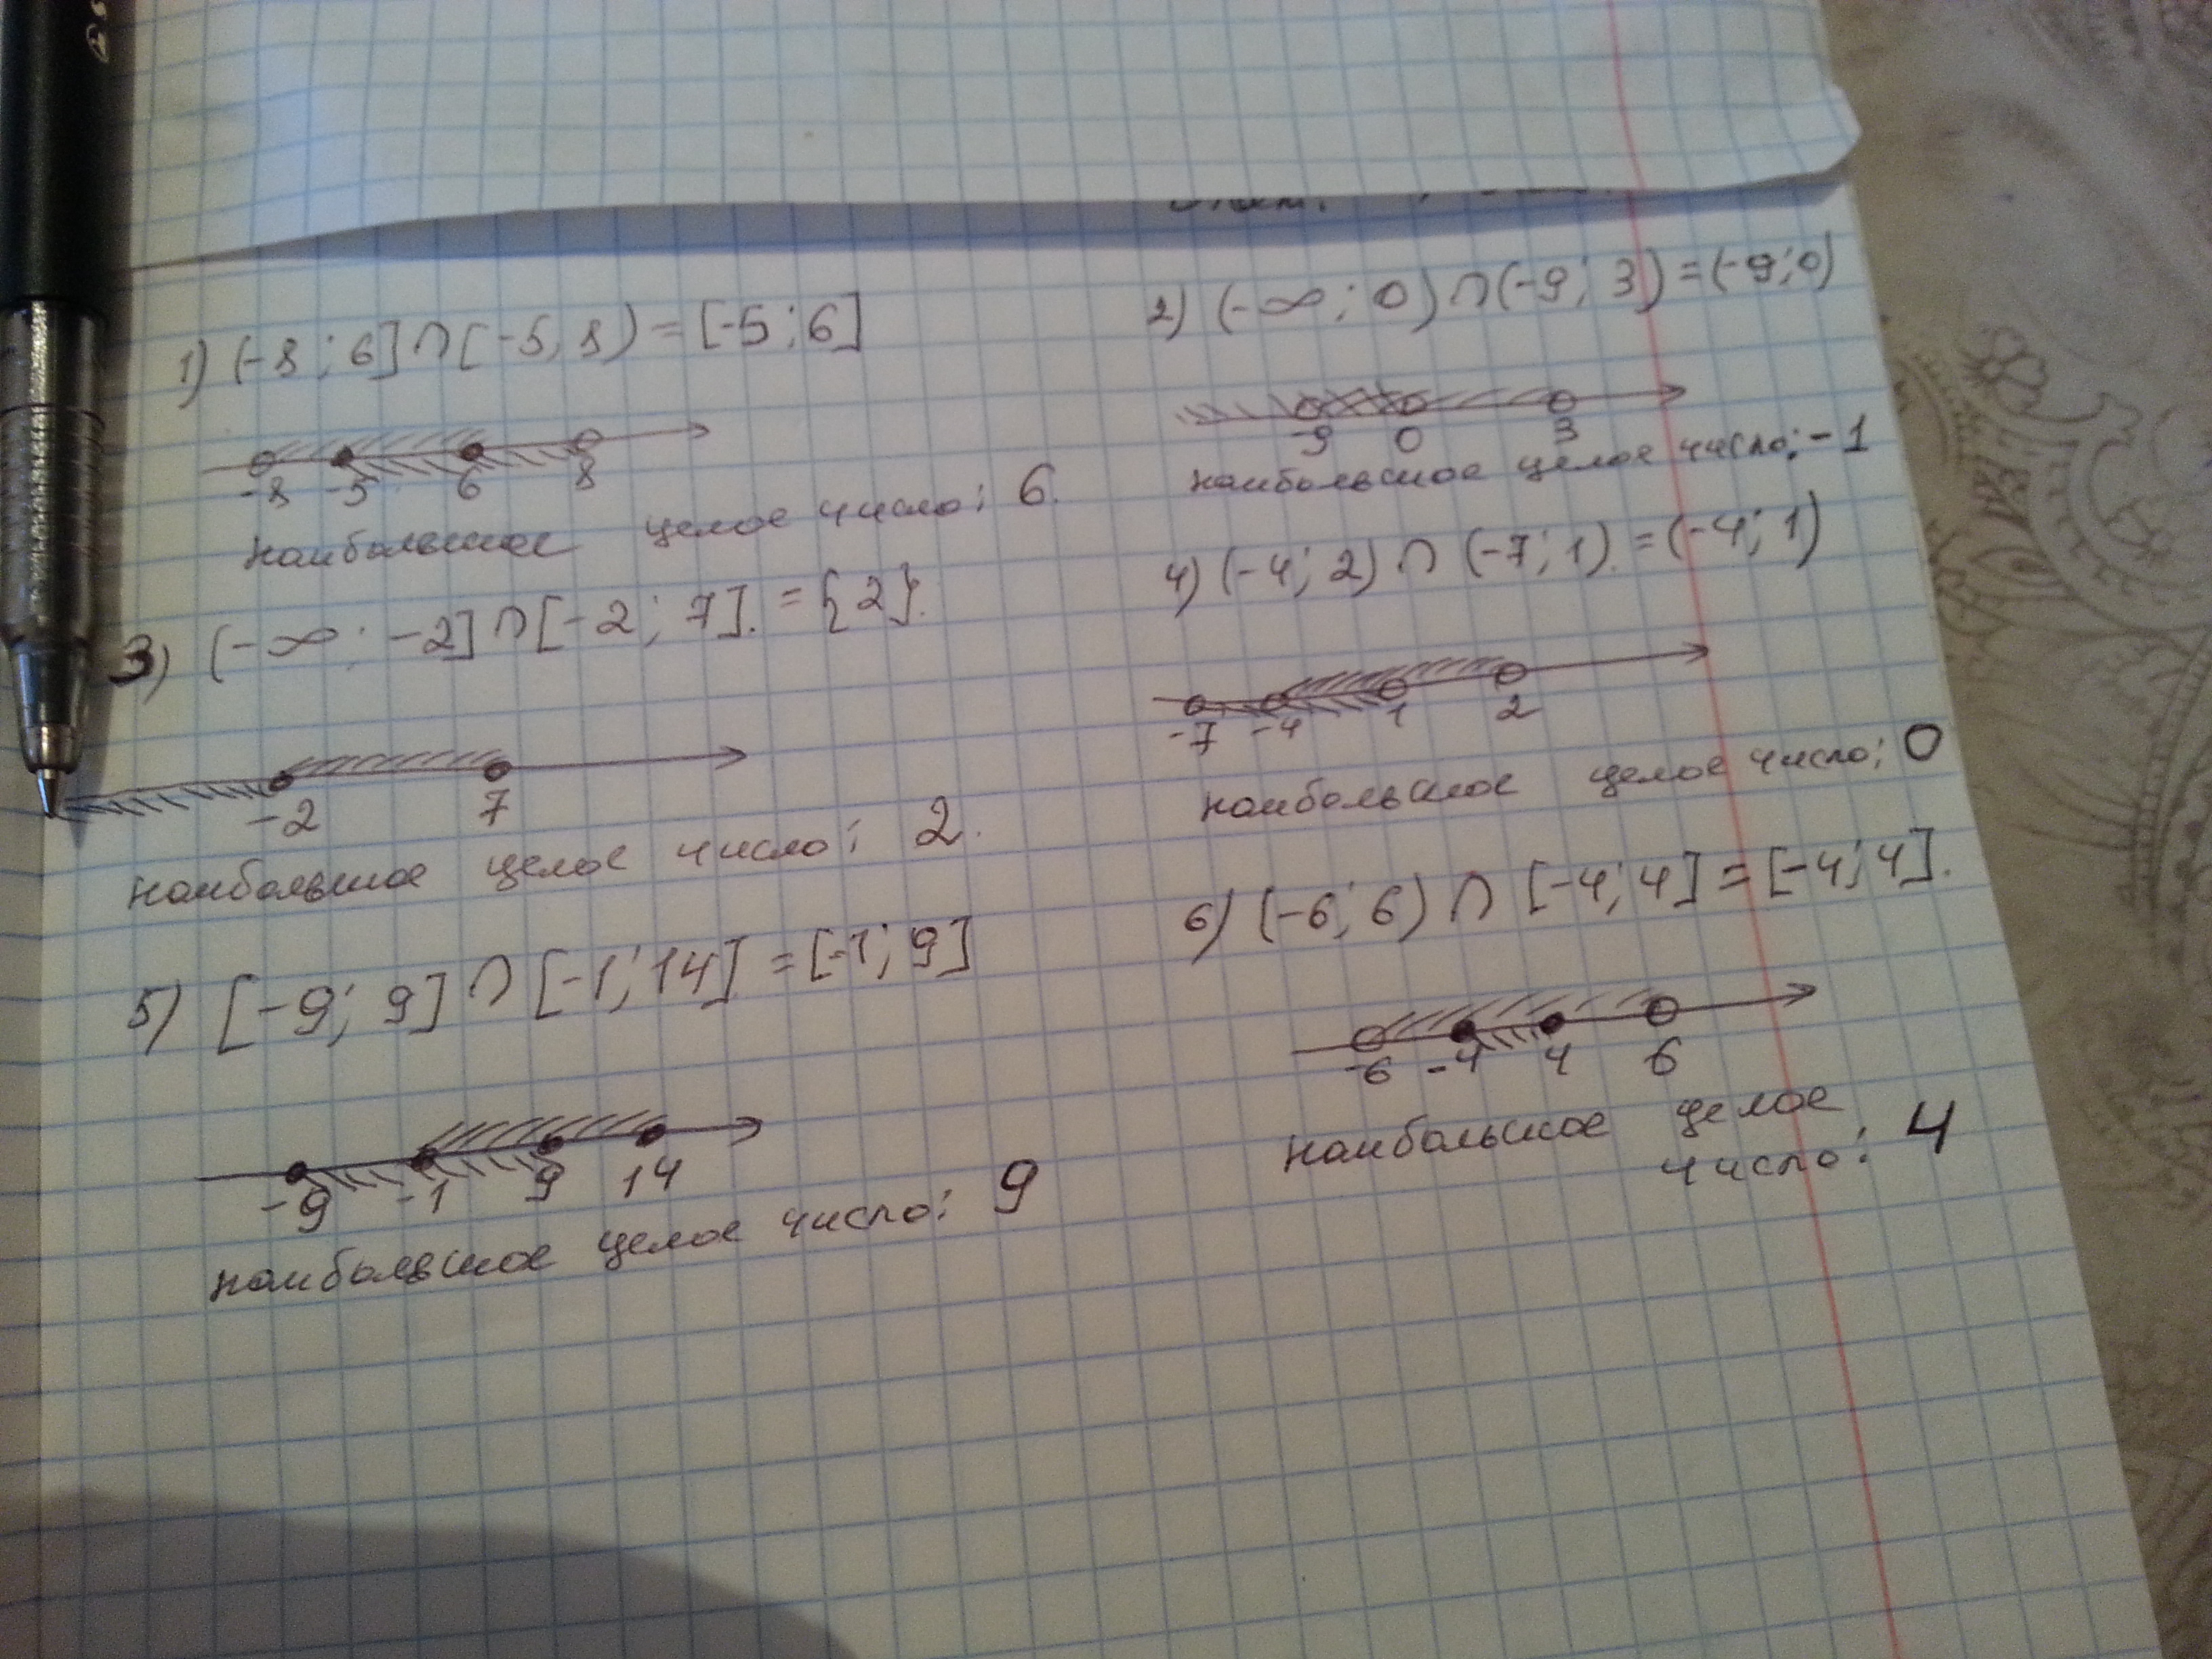 1) (-8; 6] ∩ [-5, 8) = [-5; 6]
-8 -5 6 8
наибольшое целое число: 6.
2) (-∞; 0) ∩ (-9; 3) = (-9; 0)
-9 0 3
наибольшое целое число: -1
3) (-∞; -2] ∩ [-2; 7]. = {2}.
-2 7
наибольшое целое число: 2.
4) (-4; 2) ∩ (-7; 1). = (-4; 1)
-7 -4 1 2
наибольшое целое число: 0
5) [-9; 9] ∩ [-1; 14] = [-1; 9]
-9 -1 9 14
наибольшое целое число: 9
6) (-6; 6) ∩ [-4; 4] = [-4; 4].
-6 -4 4 6
наибольшое целое
число: 4